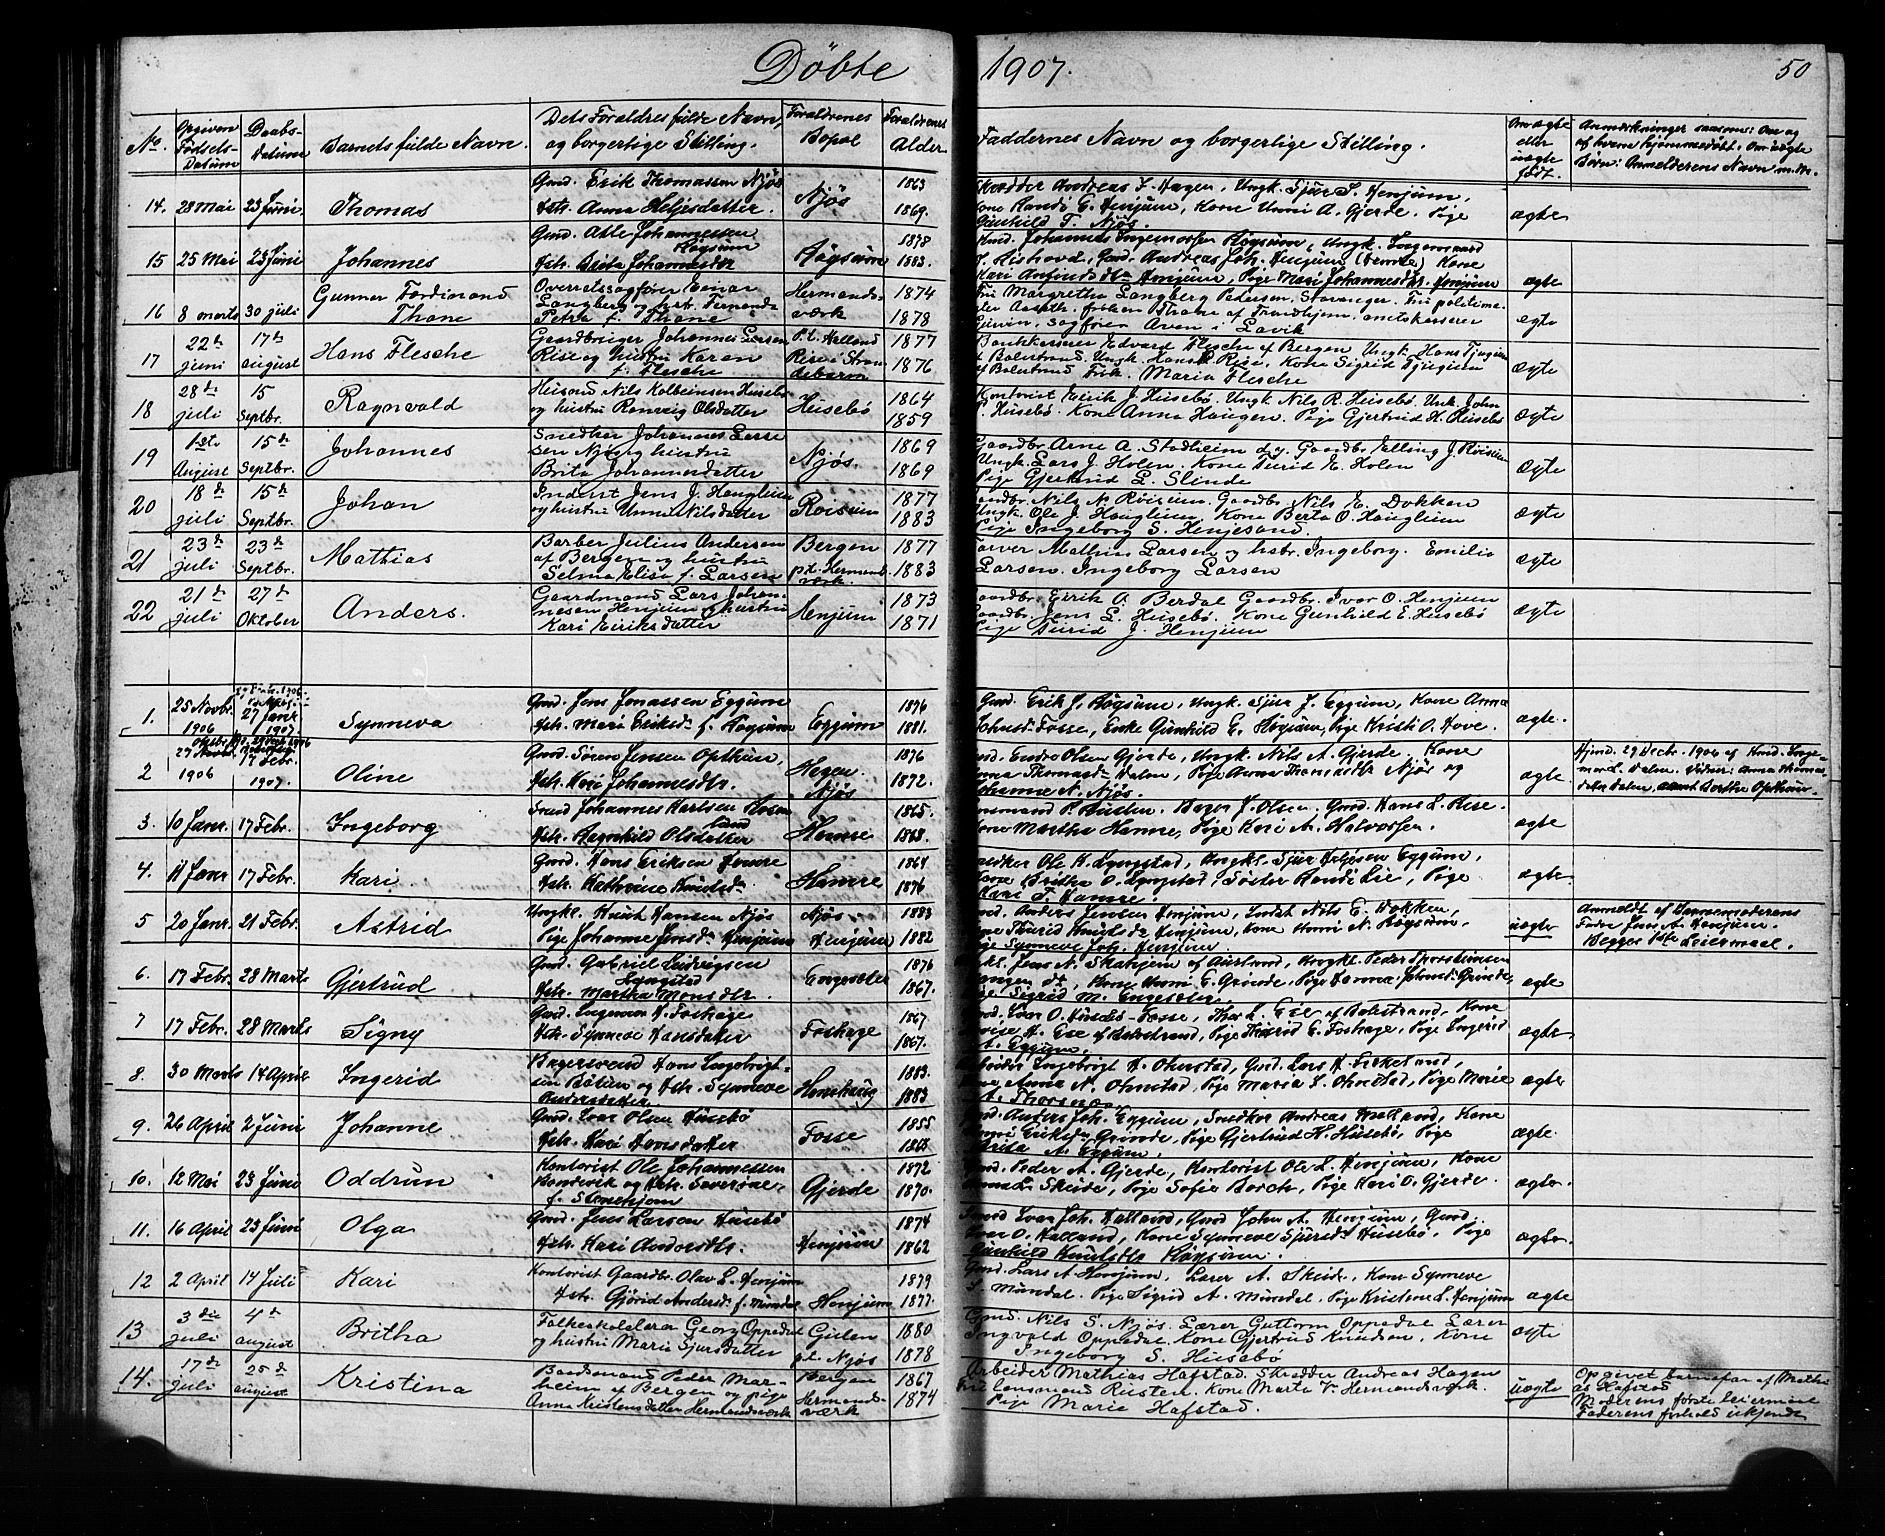 Döbte 1907. 50
No. Opgiven Födsels-Datum Daabs-Datum Barnets fulde Navn. Dets Foraldres fulde Navn, og borgerlige Stilling. Foraldrenes Bopæl Foraldrenes Alder. Faddernes Navn og borgerlige Stilling. Om ægte eller uægte födt. Anmærkninger saasom: Om og af hvem hjemmedöbt. Om uægte Börn: Anmelderens Navn m.m.
14. 28 Mai 23 Juni Thomas Gmd. Erik Thomassen Njøs Hstr. Anna Helgesdatter. Njøs 1863 1869. Skrædder Andreas J. Hagen, Ungk. Sjur S. Henjum, Kone Randi E. Henjum, Kone Unni A. Gjerde. Pige Gunhild T. Njøs. ægte
15 25 Mai 23 Juni Johannes Gmd. Atle Johannessen Røysum Hstr. Brita Johannesdtr Røysum 1878 1883. Johannes Ingemorsen Røysum, Ungk. Gmd. Andreas Joh. Henjum Kone Kari Henjum, Pige Mari Johannesdtr. Henjum ægte
16 8 marts 30 juli Gunner Ferdinand Thane Overretssagfører Einar Langberg og hstr. Fernanda Petra f. Thane Hermansværk 1874 1878 Fru Margretha Langberg Pedersen, Stavanger. Fru politime- fröken Thane af Trondhjem. amtskasserer sagförer Aven i Lavik ægte
17 22de juni 17de august Hans Flesche Gaardbruger Johannes Larsen Rise og hustru Karen f. Flesche P.t. Helland Rise i Strandebarm 1877 1876 Bankkasserer Edvard Flesche af Bergen. Ungk. Hans Tjugum af Balestrand. Ungk. Hans L. Rise, Kone Sigrid Tjugum af Balestrand Frk. Maria Flesche ægte
18 28de juli 15 Septbr. Ragnvald Husmd Nils Kolbeinsen Husebø og hustru Ranveig Olsdatter Husebö 1864 1859 Kontorist Eirik J. Husebö. Ungk. Nils R. Husebö. Unk. John Husebö. Kone Anna Haugen. Pige Gjertrud H. Husebö ægte
19 1ste August 15de Septbr. Johannes Snedker Johannes Larssen Njøs og hustru Brita Johannesdatter Njøs. 1869 1869 Gaardbr. Arne A. Stadheim Gaardbr. Elling J. Röisum Ungk. Lars J. Holen. Kone Turid E. Holen Pige Gjertrud L. Slinde ægte
20 18de juli 15de Septbr. Johan Inderst Jens J. Hauglium og hustru Unni Nilsdatter Röisum 1877 1883 Gaardbr. Nils N. Röisum. Gaardbr. Nils E. Dokken Ungk. Ole J. Haugliun. Kone Berta O. Haugliun Pige Ingeborg S. Henjesand. ægte
21 23de juli 23de Septbr. Mathias Barber Julius Andersen af Bergen og hustru Selma Elise f. Larsen Bergen p.t. Hermansværk. 1877 1883 Farver Mathias Larsen og hstr. Ingeborg. Emilie Larsen. Ingeborg Larsen ægte
22 21de juli 27de Oktober Anders. Gaardmand Lars Johannesen Henjum og hustru Kari Eiriksdatter Henjum 1873 1871 Gaardbr. Eirik A. Berdal Gaardbr. Ivar O. Henjum Gaardbr. Jens L. Husebö. Kone Gunhild E. Husebö Pige Turid J. Henjum ægte
1. 25 Novbr. 1906 27 Janr 1907 Synneva Gmd. Jens Jonassen Eggum Hstr. Mari Eriksd. f. Røysum Eggum 1876 1881. Gmd. Erik J. Røysum, Ungk. Sjur J. Eggum, Kone Anna Fosse, Enke Gunhild E. Røysum, Pige Kristi O. Hove. ægte.
2 1906 17 Febr. 1907. Oline Gmd. Søren Jensen Opthun, Hstr. Kari Johannesdtr. Hagen Njøs 1876 1872. Gmd. Endre Olsen Gjerde, Ungk. Nils A. Gjerde. Kone Anna Thomasd. Dalen, Pige Anna Thomasdtr Njøs og Johanne N. Njøs. ægte Hjmd. 29 Decbr. 1906 af Kmd. Inge- Dalen. Vidner: Anna Thomas- datter Dalen, samt Berthe Opthun.
3. 10 Janr. 17 Febr. Ingeborg Johannes Karlsen Hstr. Ragnhild Olsdatter Hamre 1865. 1868. Lensmand P. Rusten. Bager J. Olsen. Gmd. Hans L. Rise. Kone Martha Hamre, Pige Kari A. Halvorsen. ægte
4. 11 Janr 17 Febr. Kari. Gmd. Hans Eriksen Hamre Hstr. Kathrine Knudsd. Hamre 1864 1876 Snedker Ole K. Lyngstad, Ungkl. Sjur Eggum, Kone Britha O. Lyngstad, Søster Randi Lie, Pige Kari T. Hamre. ægte.
5 20 Janr. 21 Febr. Astrid Ungkl. Knut Hansen Njøs Pige Johanne Jensd. Henjum Njøs. Henjum 1883 1882 Gmd. Anders Jensen Henjum, Indst Nils E. Dokken, Kone Thurid Knutsdtr Henjum, Kone Unni N. Røysum. Pige Synneve Joh. Henjum. uægte Anmeldt af Barnemoderens Fader Jens A. Henjum. Begges 1ste Leiermaal.
6. 17 Febr. 28 Marts Gjertrud Gmd. Gabriel Ludvigsen Lyngstad Hstr. Martha Monsdtr. Engesæter 1876 1867. Jens N. Skahjem af Aurland, Ungkl. Peder Thorstensen Kone Unni E. Grinde, Pige Grinde, Pige Sigrid M. Engesæter. ægte
7 17 Febr. 28 Marts Signy Gmd. Ingemon H. Foshage Hstr. Synneve Hansdatter Foshage 1867 1867. Gmd. Ivar O. Husebø-Fosse, Thor L. Ese af Balestrand, Kone H. Ese af Balestrand, Pige Thurid E. Foshage, Pige Ingerid A. Eggum. ægte
8. 30 Marts 14 April Ingerid Bagersvend Hans Ingebrigtsen Bøtun og Hstr. Synneve Andersdatter Henshaug 1883. 1883 Arbeider Ingebrigt H. Ohnstad, Gmd. Lars H. Kone Anna N. Ohnstad, Pige Maria L. Ohnstad, Pige Marie A. Thorsnæs. ægte
9. 26 April 2 Juni Johanne Gmd. Ivar Olsen Husebø Hstr. Kari Monsdatter Fosse 1855 1868. Gmd. Anders Joh. Eggum, Snedker Andreas Holland, Kone Unni Eriksdtr Grinde, Pige Gjertrud H. Husebø, Pige Brita A. Eggum. ægte.
10. 12 Mai 23 Juni Oddrun Kontorist Ole Johannessen Handevik og Hstr. Severine f. Stenehjem Gjerde 1872 1870. Gmd. Peder A. Gjerde, Kontorist Ole L. Henjum, Kone Anna L. Skeide, Pige Sofie Borch, Pige Kari O. Gjerde. ægte
11. 16 April 23 Juni Olga Gmd. Jens Larsen Husebø Hstr. Kari Andersdtr. Henjum 1874 1862 Smed Ivar Joh. Halland, Gmd John A. Henjum, Gmd. Ivar O. Halland, Kone Synneve Sjursdtr Husebø. Pige Gunhild Knutsdtr Røysum. ægte
12 2 April 14 Juli Kari Kontorist Gaardbr. Olav L. Henjum Hstr. Gjørid Andersd. f. Mundal Henjum 1879 1877. Gmd. Lars A. Henjum, Lærer A. Skeide, Kone Synneve S. Mundal. Pige Sigrid A. Mundal, Pige Kristene L. Henjum ægte
13 3die juli 4de august Britha Folkeskolelærer Georg Oppedal og hustru Maria Sjursdatter Gulen pt. Njøs 1880 1878 Gmd. Nils S. Njøs. Lærer Guttorm Oppedal Lærer Ingvald Oppedal. Kone Gjertrud Knudsen, Kone Ingeborg S. Husebö ægte
14. 17de juli 25de august Kristina Baadsmand Peder Marheim af Bergen og pige Anna Kristensdatter Hermansværk Bergen Hermansværk 1867 1874 Arbeider Mathias Hafstad. Skrædder Andreas Hagen Fru Lensmand Rusten. Kone Marta Hermansværk. Pige Marie Hafstad. uægte Opgivet barnefar af Mathias Hafstad Moderens förste leiermaal Faderens forhold ukjendt